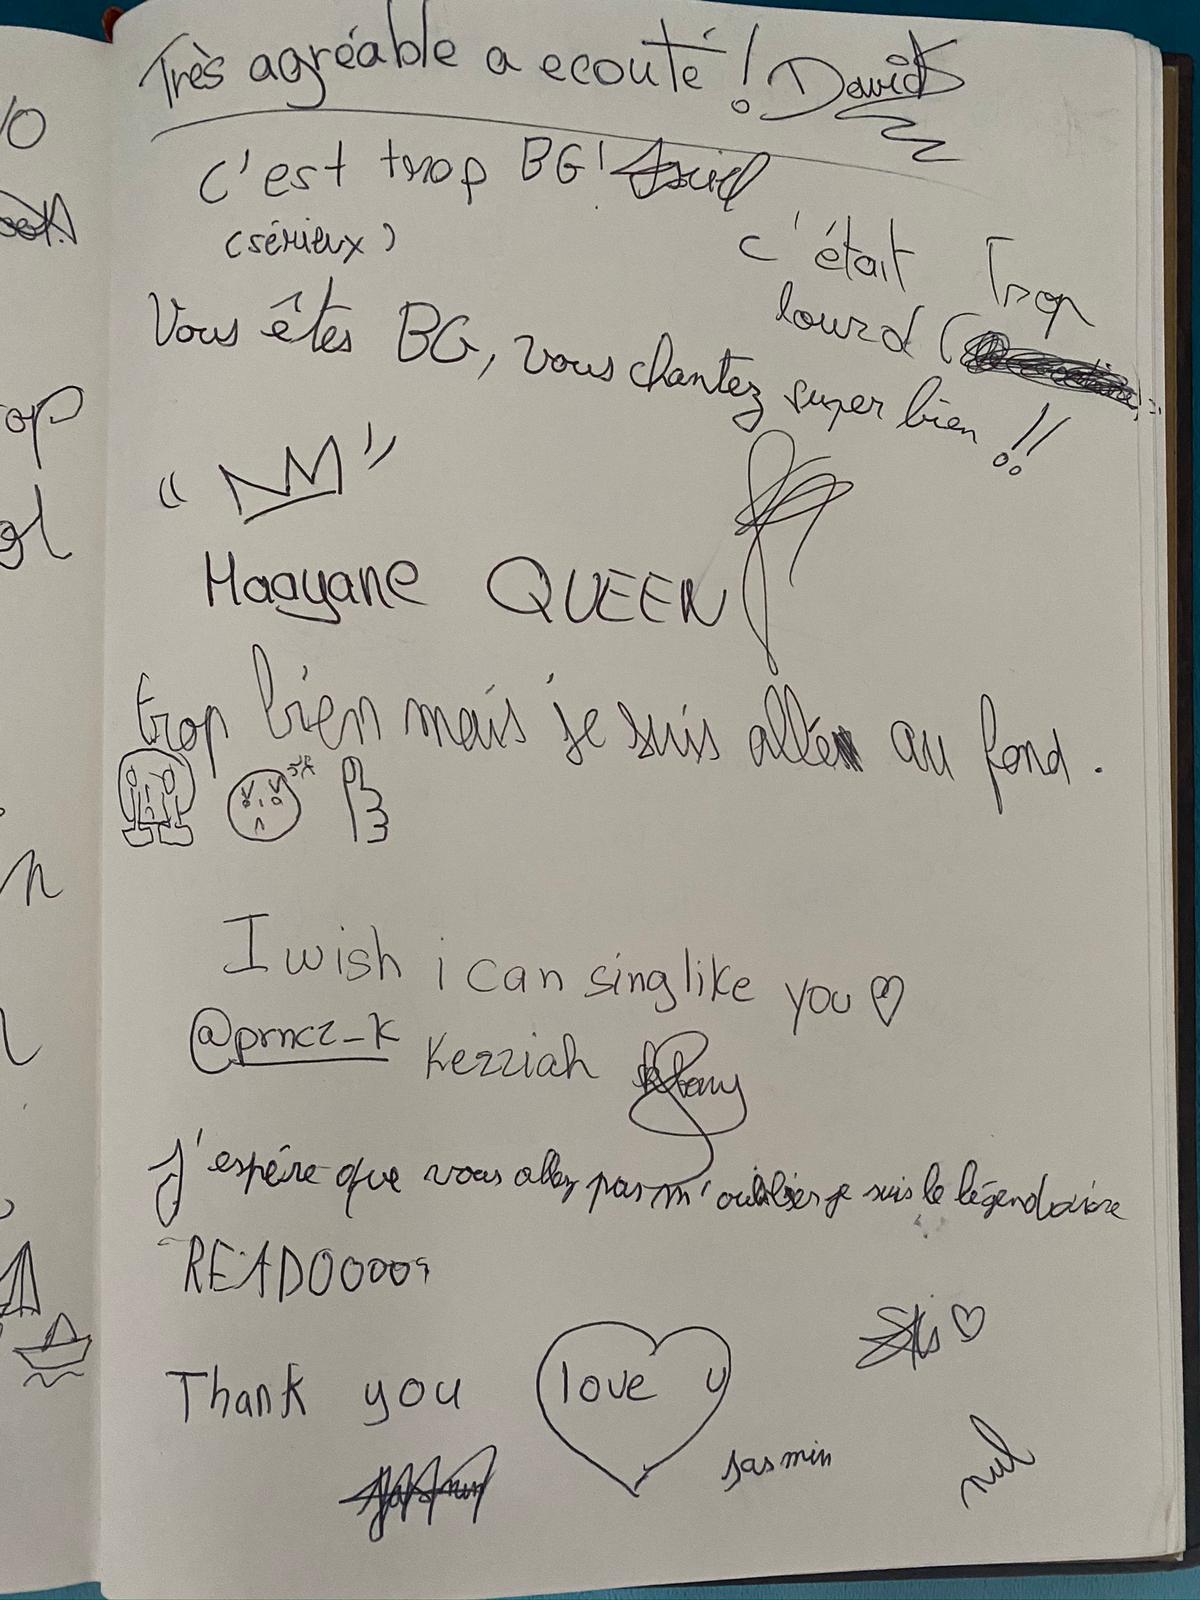 Très agréable a ecouté ! David
c'est trop BG !
(sérieux)
c'était Trop
lourd (
Vous êtes BG, vous chantez super bien !!
Haayane QUEEN
trop bien mais je suis allé au fond.
I wish i can sing like you ♡
@prncz_k Kezziah
J'espére que vous allez pas m'oublier je suis le légendaire
READOoooo
Thank you
love u
♡
Jasmin
nul
op